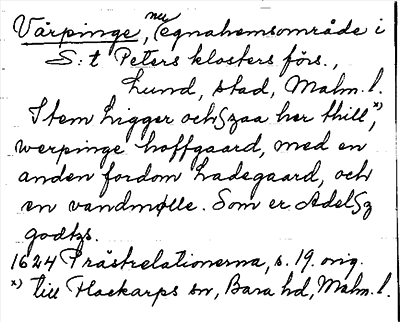 Värpinge, nu egnahemsområde i
S:t Peters klosters förs.,
Lund, stad, Malm. l.
Item Ligger ochSzaa her thill *),
werpinge hoffgaard, med en
anden fordom Ladegaard, och
en vandmølle. Som er AdelSz
godtzs.
1624 Prästrelationerna, s. 19. orig.
*) till Flackarps sn, Bara hd, Malm. l.